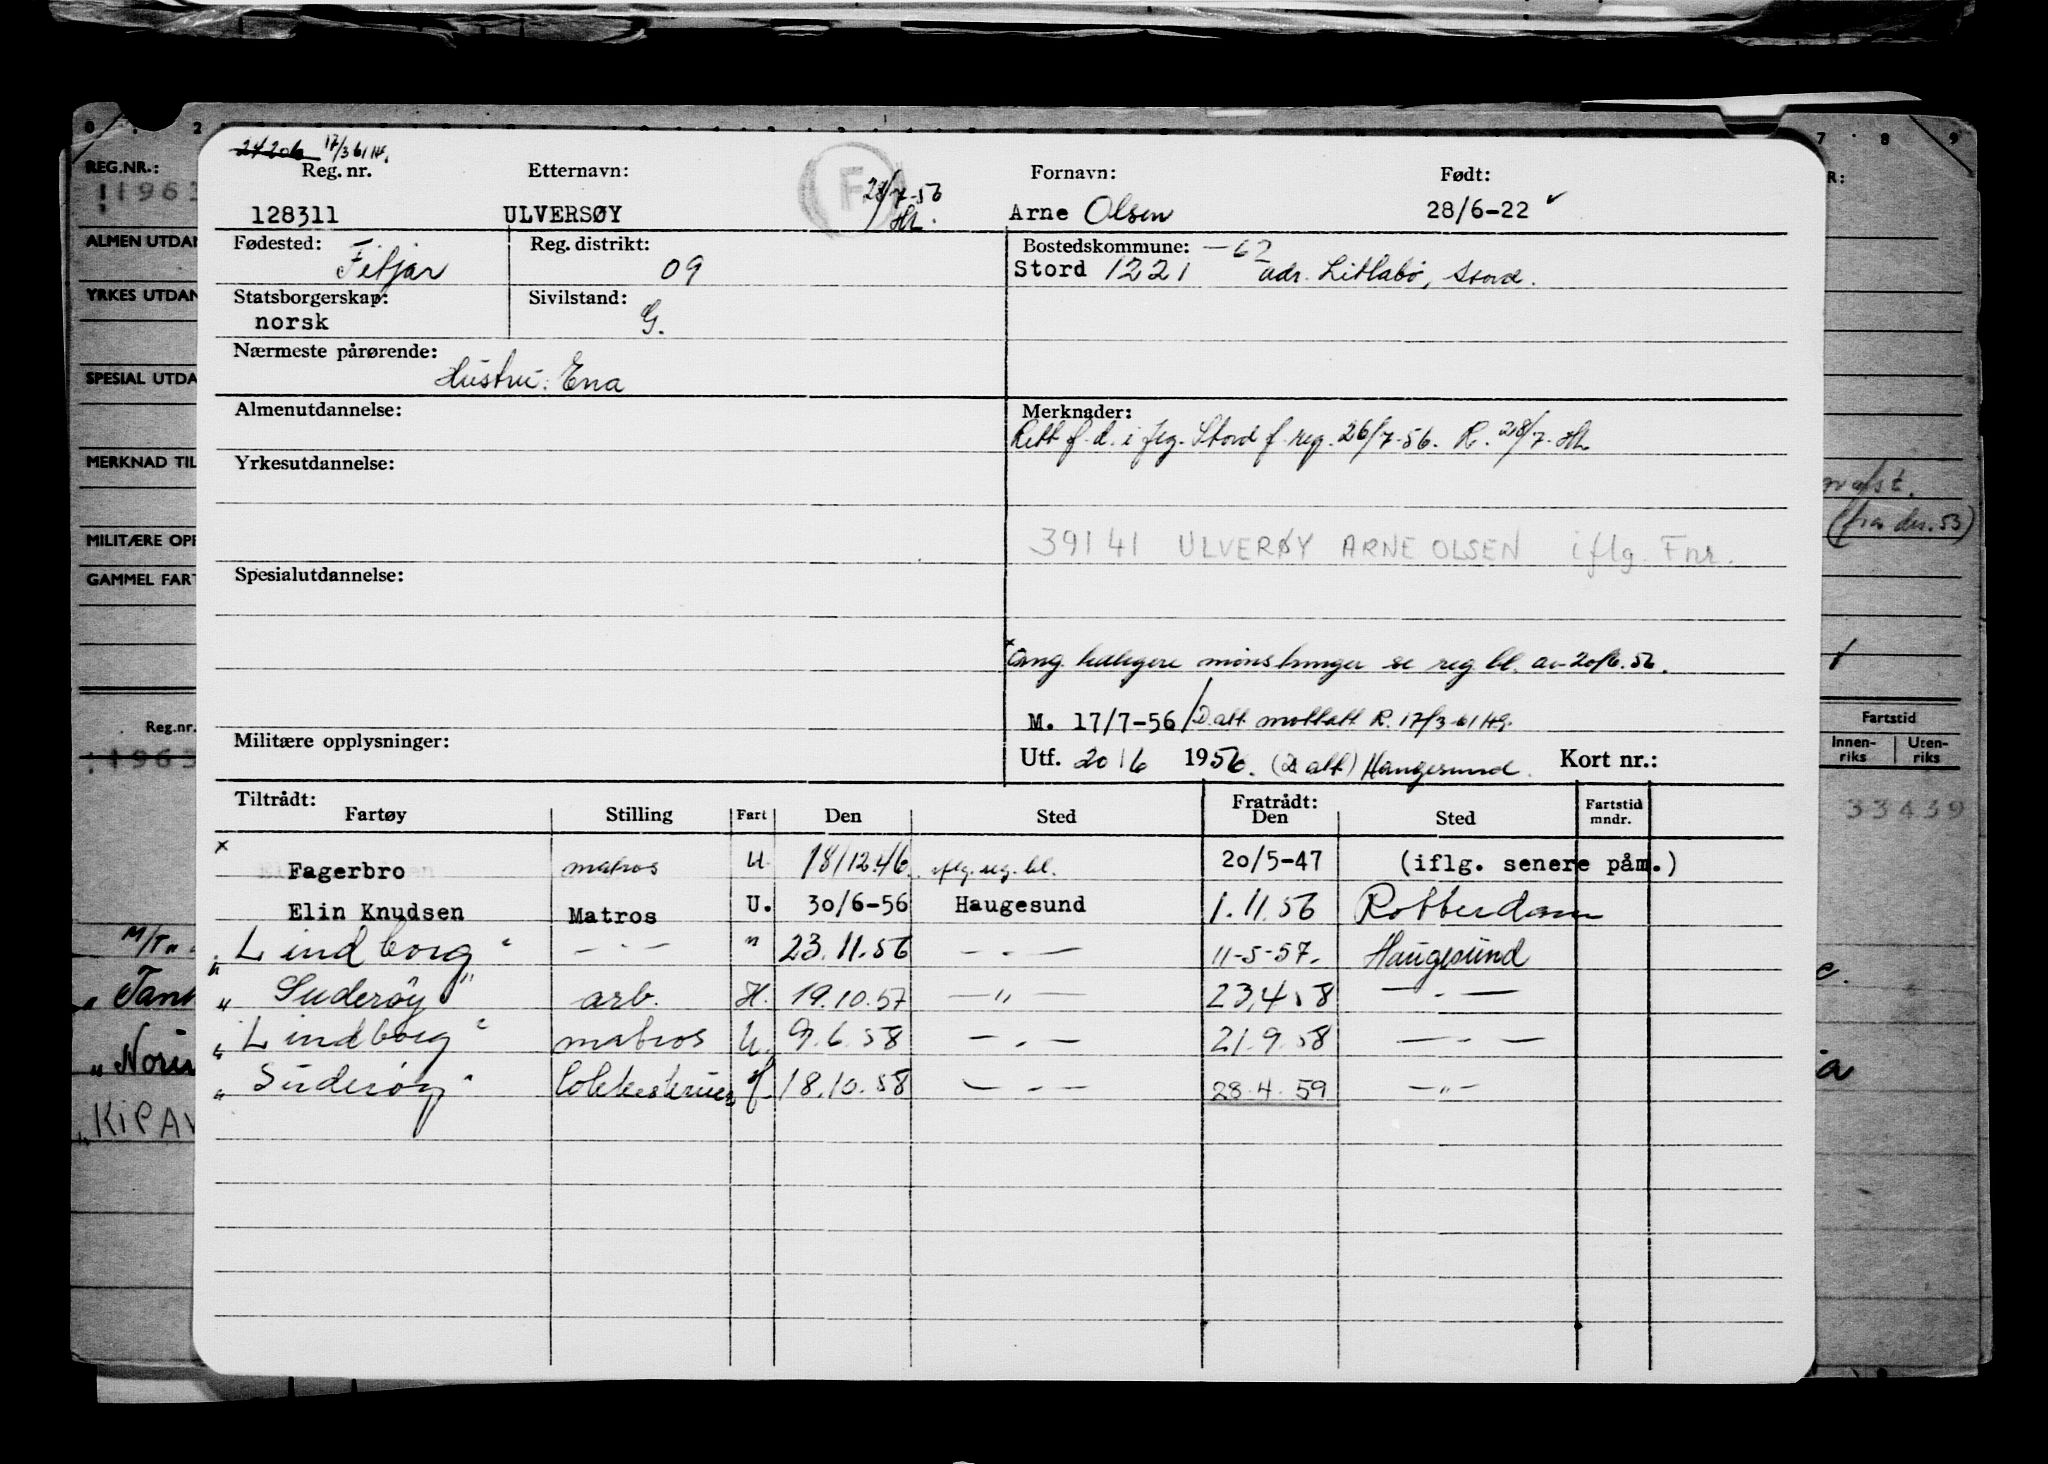 0 . 2 7 . 8 9
24206 17/3 61 Hg.
REG.NR.: Reg. nr. Etternavn: F Fornavn: Født: R:
1963 128311 ULVERSØY 28/7-56 Arne Olsen 28/6-22 ✓
ALMEN UTDAN Fødested: Fitjar Reg. distrikt: 09 Bostedskommune: -62
Stord 1221 adr. Litlabø, Stord.
YRKES UTDAN Statsborgerskap: norsk Sivilstand: G.
Nærmeste pårørende: Hustru: Ena
SPESIAL UTDA
Almenutdannelse: Merknader:
Rett f. d. i flg. Stord f. reg. 26/7-56. R. 28/7. HH
MERKNAD TIL Yrkesutdannelse:
MILITÆRE OPP 39141 ULVERØY ARNE OLSEN iflg. Fnr. (fra des. 53)
GAMMEL FART Spesialutdannelse:
x Ang. tidligere mønstringer se reg. bl. av 20/6. 56.
M. 17/7-56 / D. att. mottatt R. 17/3-61 Hg.
Reg.nr. Militære opplysninger: Utf. 20/6 1956. (D att) Haugesund. Kort nr.: Fartstid
1963 Innen-riks Uten-riks
Tiltrådt: Fratrådt:
Fartøy Stilling Fart Den Sted Den Sted Fartstid mndr. 33439
x Fagerbro matros U. 18/12.46 iflg. reg. bl. 20/5-47 (iflg. senere påm.)
Elin Knudsen Matros U. 30/6-56 Haugesund 1.11.56 Rotterdam
M/T „ „Lindborg“ — " — " 23.11.56 — " — 11-5-57. Haugesund
„Tank „Suderøy“ arb. H. 19.10.57 — " — 23.4.58 — " —
„Lindborg“ matros U. 9.6.58 — " — 21.9.58 — " —
„Norin „Suderøy“ 18.10.58 — " — 28.4.59 — " —
„KIPAV